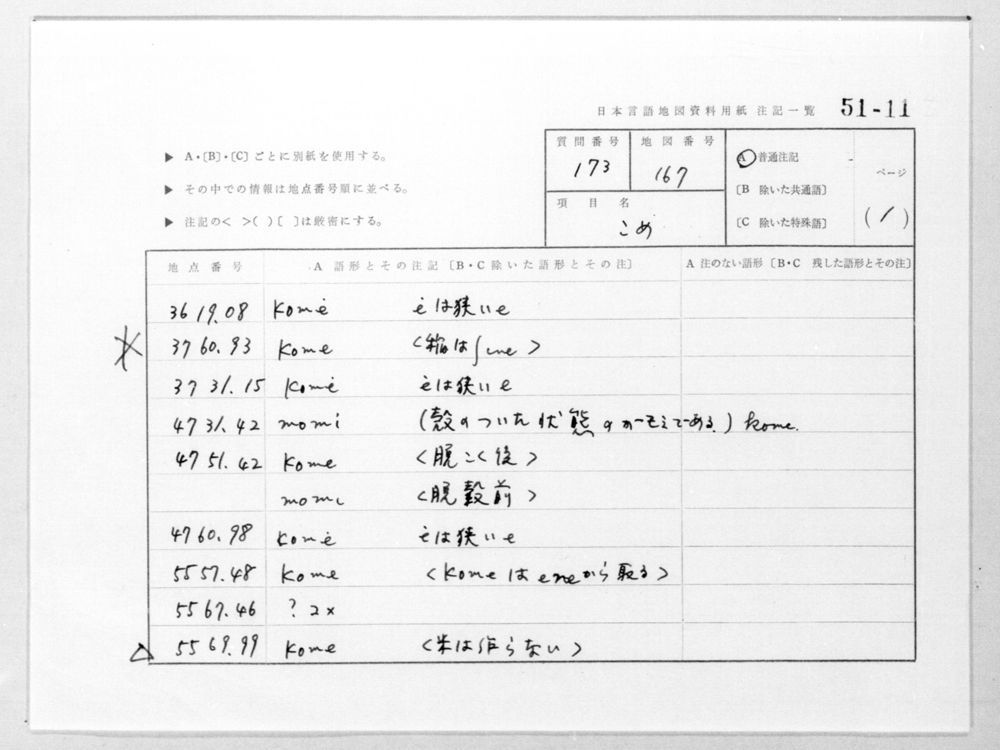 日本言語地図資料用紙 注記一覧 51-11
▶ A・〔B〕・〔C〕ごとに別紙を使用する。
▶ その中での情報は地点番号順に並べる。
▶ 注記の< >( )〔 〕は厳密にする。
質問番号 173
地図番号 167
項目名 こめ
A 普通注記
〔B 除いた共通語〕
〔C 除いた特殊語〕
ページ
(1)
地点番号 A 語形とその注記〔B・C除いた語形とその注〕 A 注のない語形〔B・C 残した語形とその注〕
3619.08 komė ėは狭いe
3760.93 kome <稲はʃine>
3731.15 komė ėは狭いe
4731.42 momi (殻のついた状態のが モミである.) kome.
4751.42 kome <脱こく後>
momi <脱穀前>
4760.98 komė ėは狭いe
5557.48 kome <komeはeneから取る>
5567.46 ? 2x
△ 5569.99 kome <米は作らない>